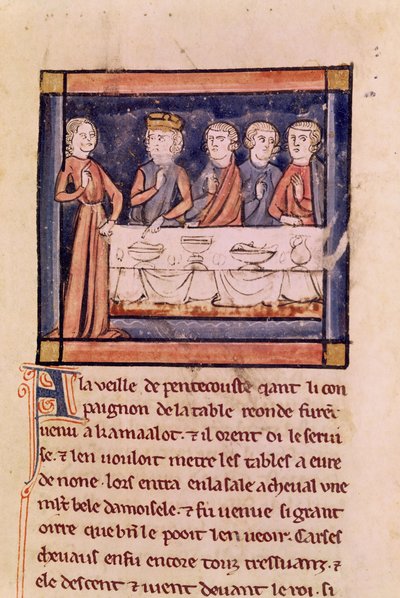 A la veille de pentecouste qant li con
paignon de la table reonde furēt
uenu a kamaalot. ⁊ il orent oi le serui
se. ⁊ len uouloit metre les tables a eure
de none. lors entra en la sale a cheual une
mlt bele damoisele. ⁊ fu uenue si grant
oirre que bn̄ le pooit len ueoir. Car ses
cheuaus en fu encore touz tressuanz. ⁊
ele descent ⁊ uient deuant le roi. si